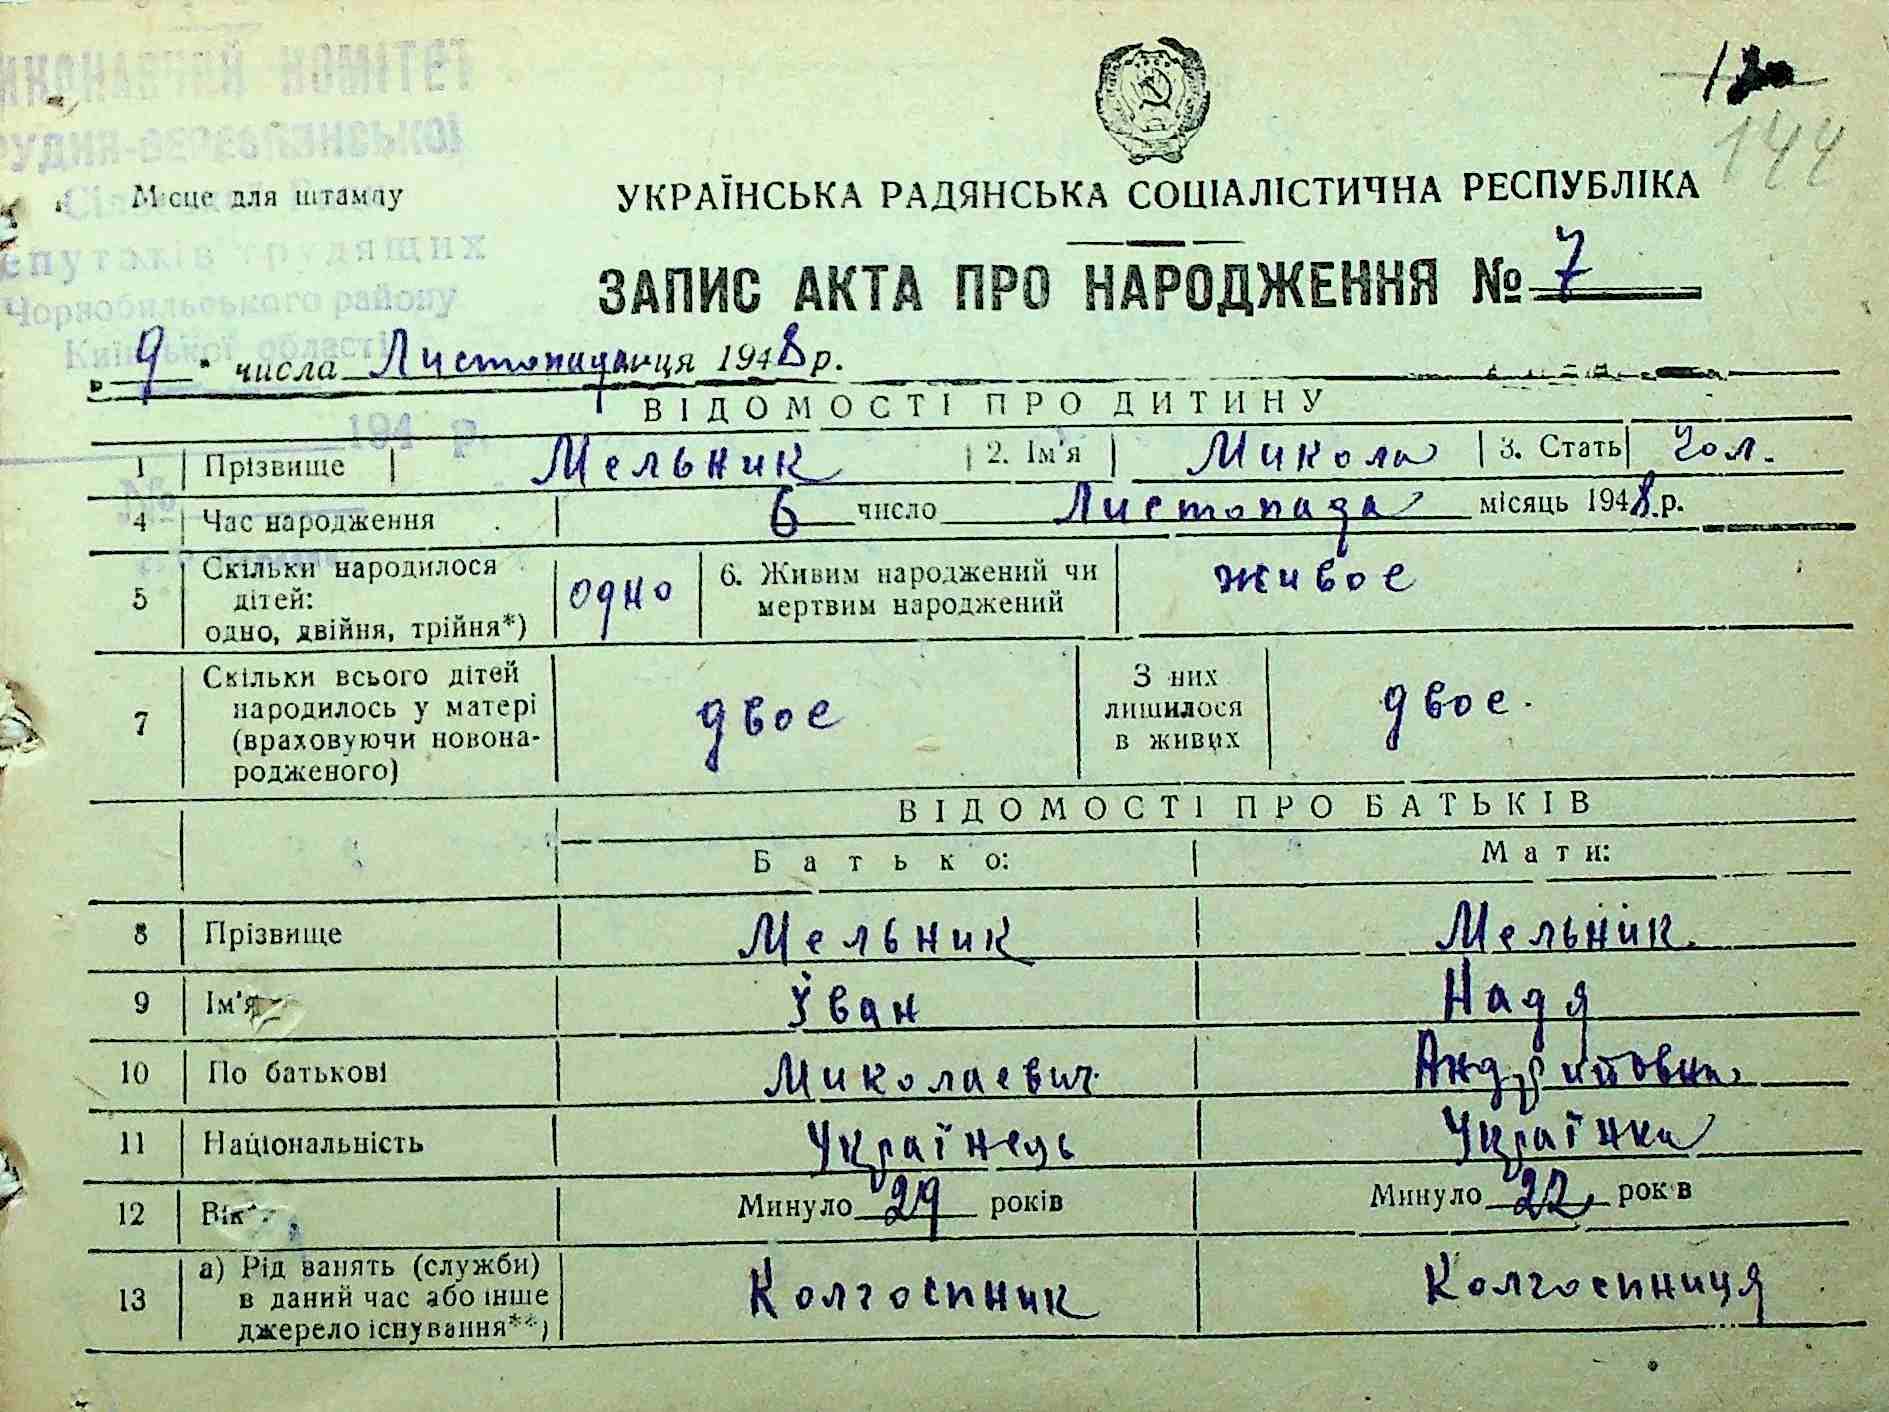 ИКОНАВЧИЙ КОМІТЕТ
РУДНЯ-ВЕРЕСНЯНСЬКОЇ
Місце для штампу
епутатів трудящих
Чорнобильського району
Київської області
194 р.
№
144
УКРАЇНСЬКА РАДЯНСЬКА СОЦІАЛІСТИЧНА РЕСПУБЛІКА
ЗАПИС АКТА ПРО НАРОДЖЕННЯ № 7
9 числа Листопада ця 1948 р.
ВІДОМОСТІ ПРО ДИТИНУ
1 Прізвище Мельник 2. Ім'я Микола 3. Стать Чол.
4 Час народження 6 число Листопада місяць 1948 р.
5 Скільки народилося дітей: одно, двійня, трійня*) одно 6. Живим народжений чи мертвим народжений живое
7 Скільки всього дітей народилось у матері (враховуючи новона-родженого) двое З них лишилося в живих двое.
ВІДОМОСТІ ПРО БАТЬКІВ
Батько: Мати:
8 Прізвище Мельник Мельник.
9 Ім'я Іван Надя
10 По батькові Миколаевич Андрийовна
11 Національність Українець Українка
12 Вік Минуло 29 років Минуло 22 років
13 а) Рід занять (служби) в даний час або інше джерело існування**) Колгоспник Колгоспниця